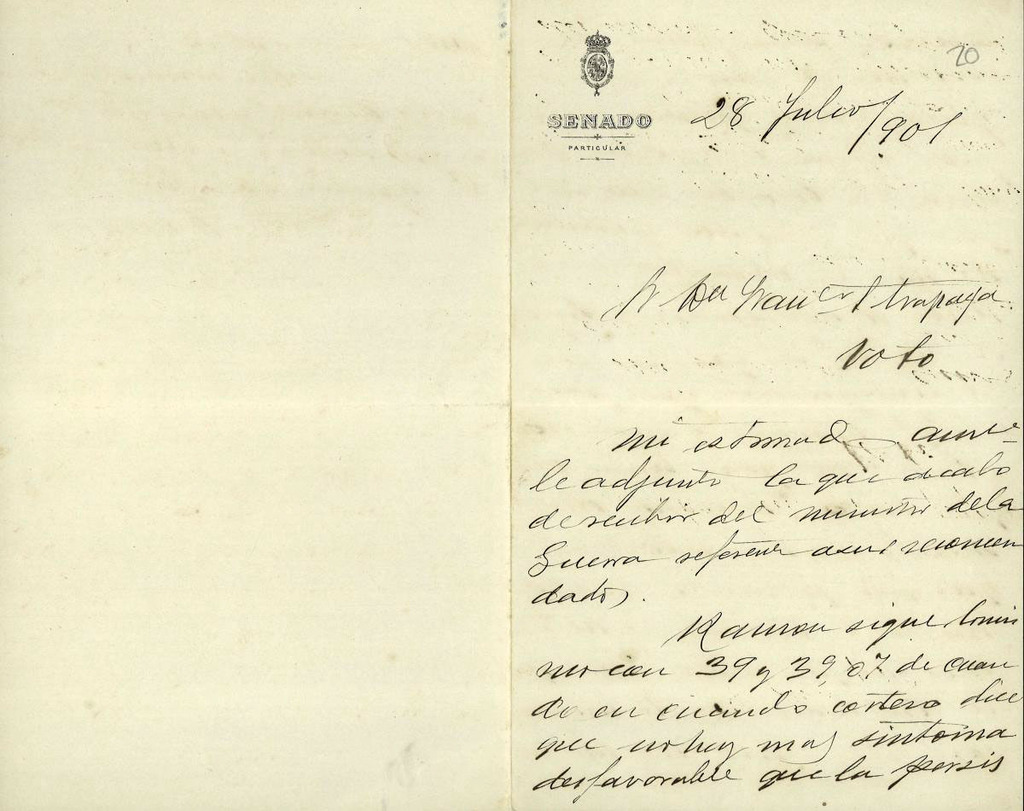 20
SENADO
PARTICULAR
28 Julio/901
Voto
Mi estimado
le adjunto la que acabo
de recibir del ministro de la
Guerra referente a sus recomen
dados.
Ramon sigue lo mis
mo con 39 y 39,07 de cuan
do en cuando cortezo dice
que no hay mas sintoma
desfavorable que la persis